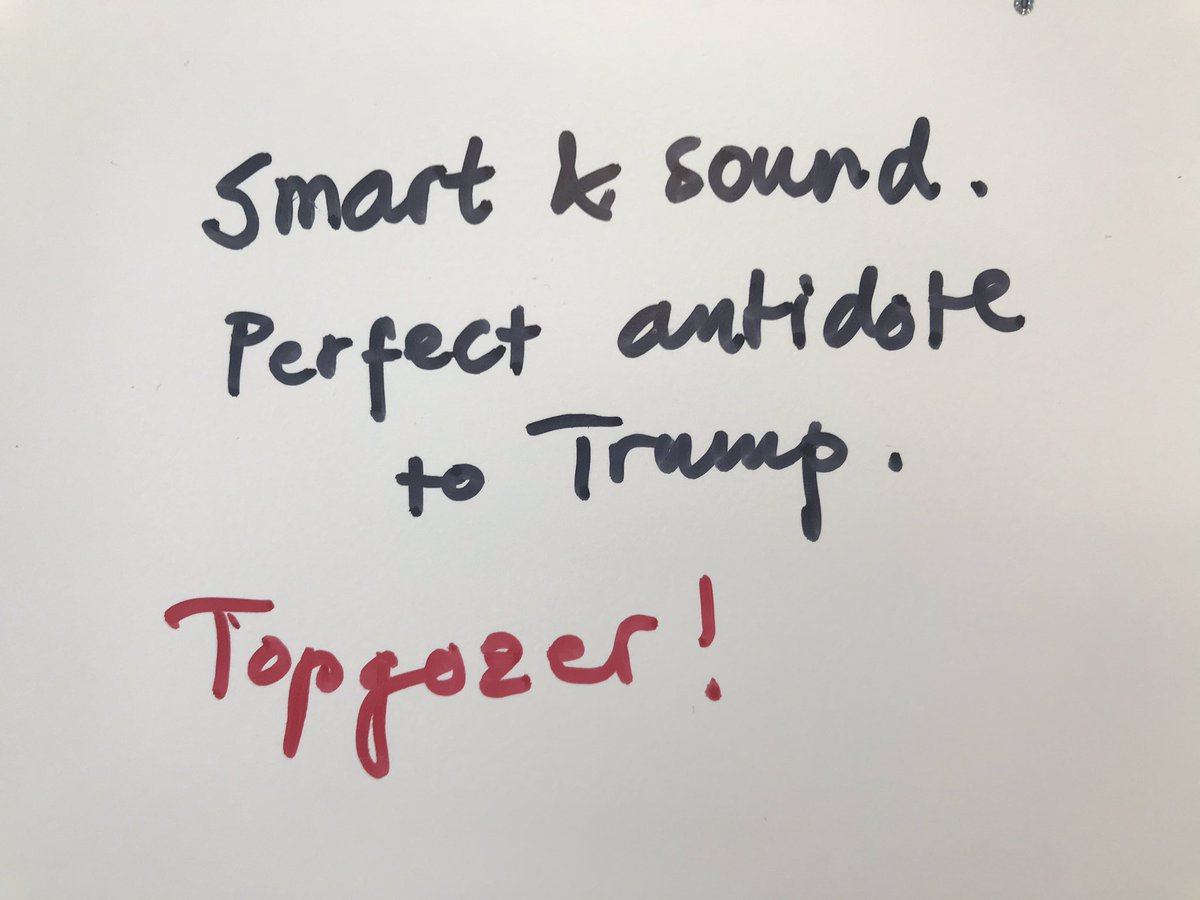 Smart & sound.
Perfect antidote
to Trump.
Topgozer!